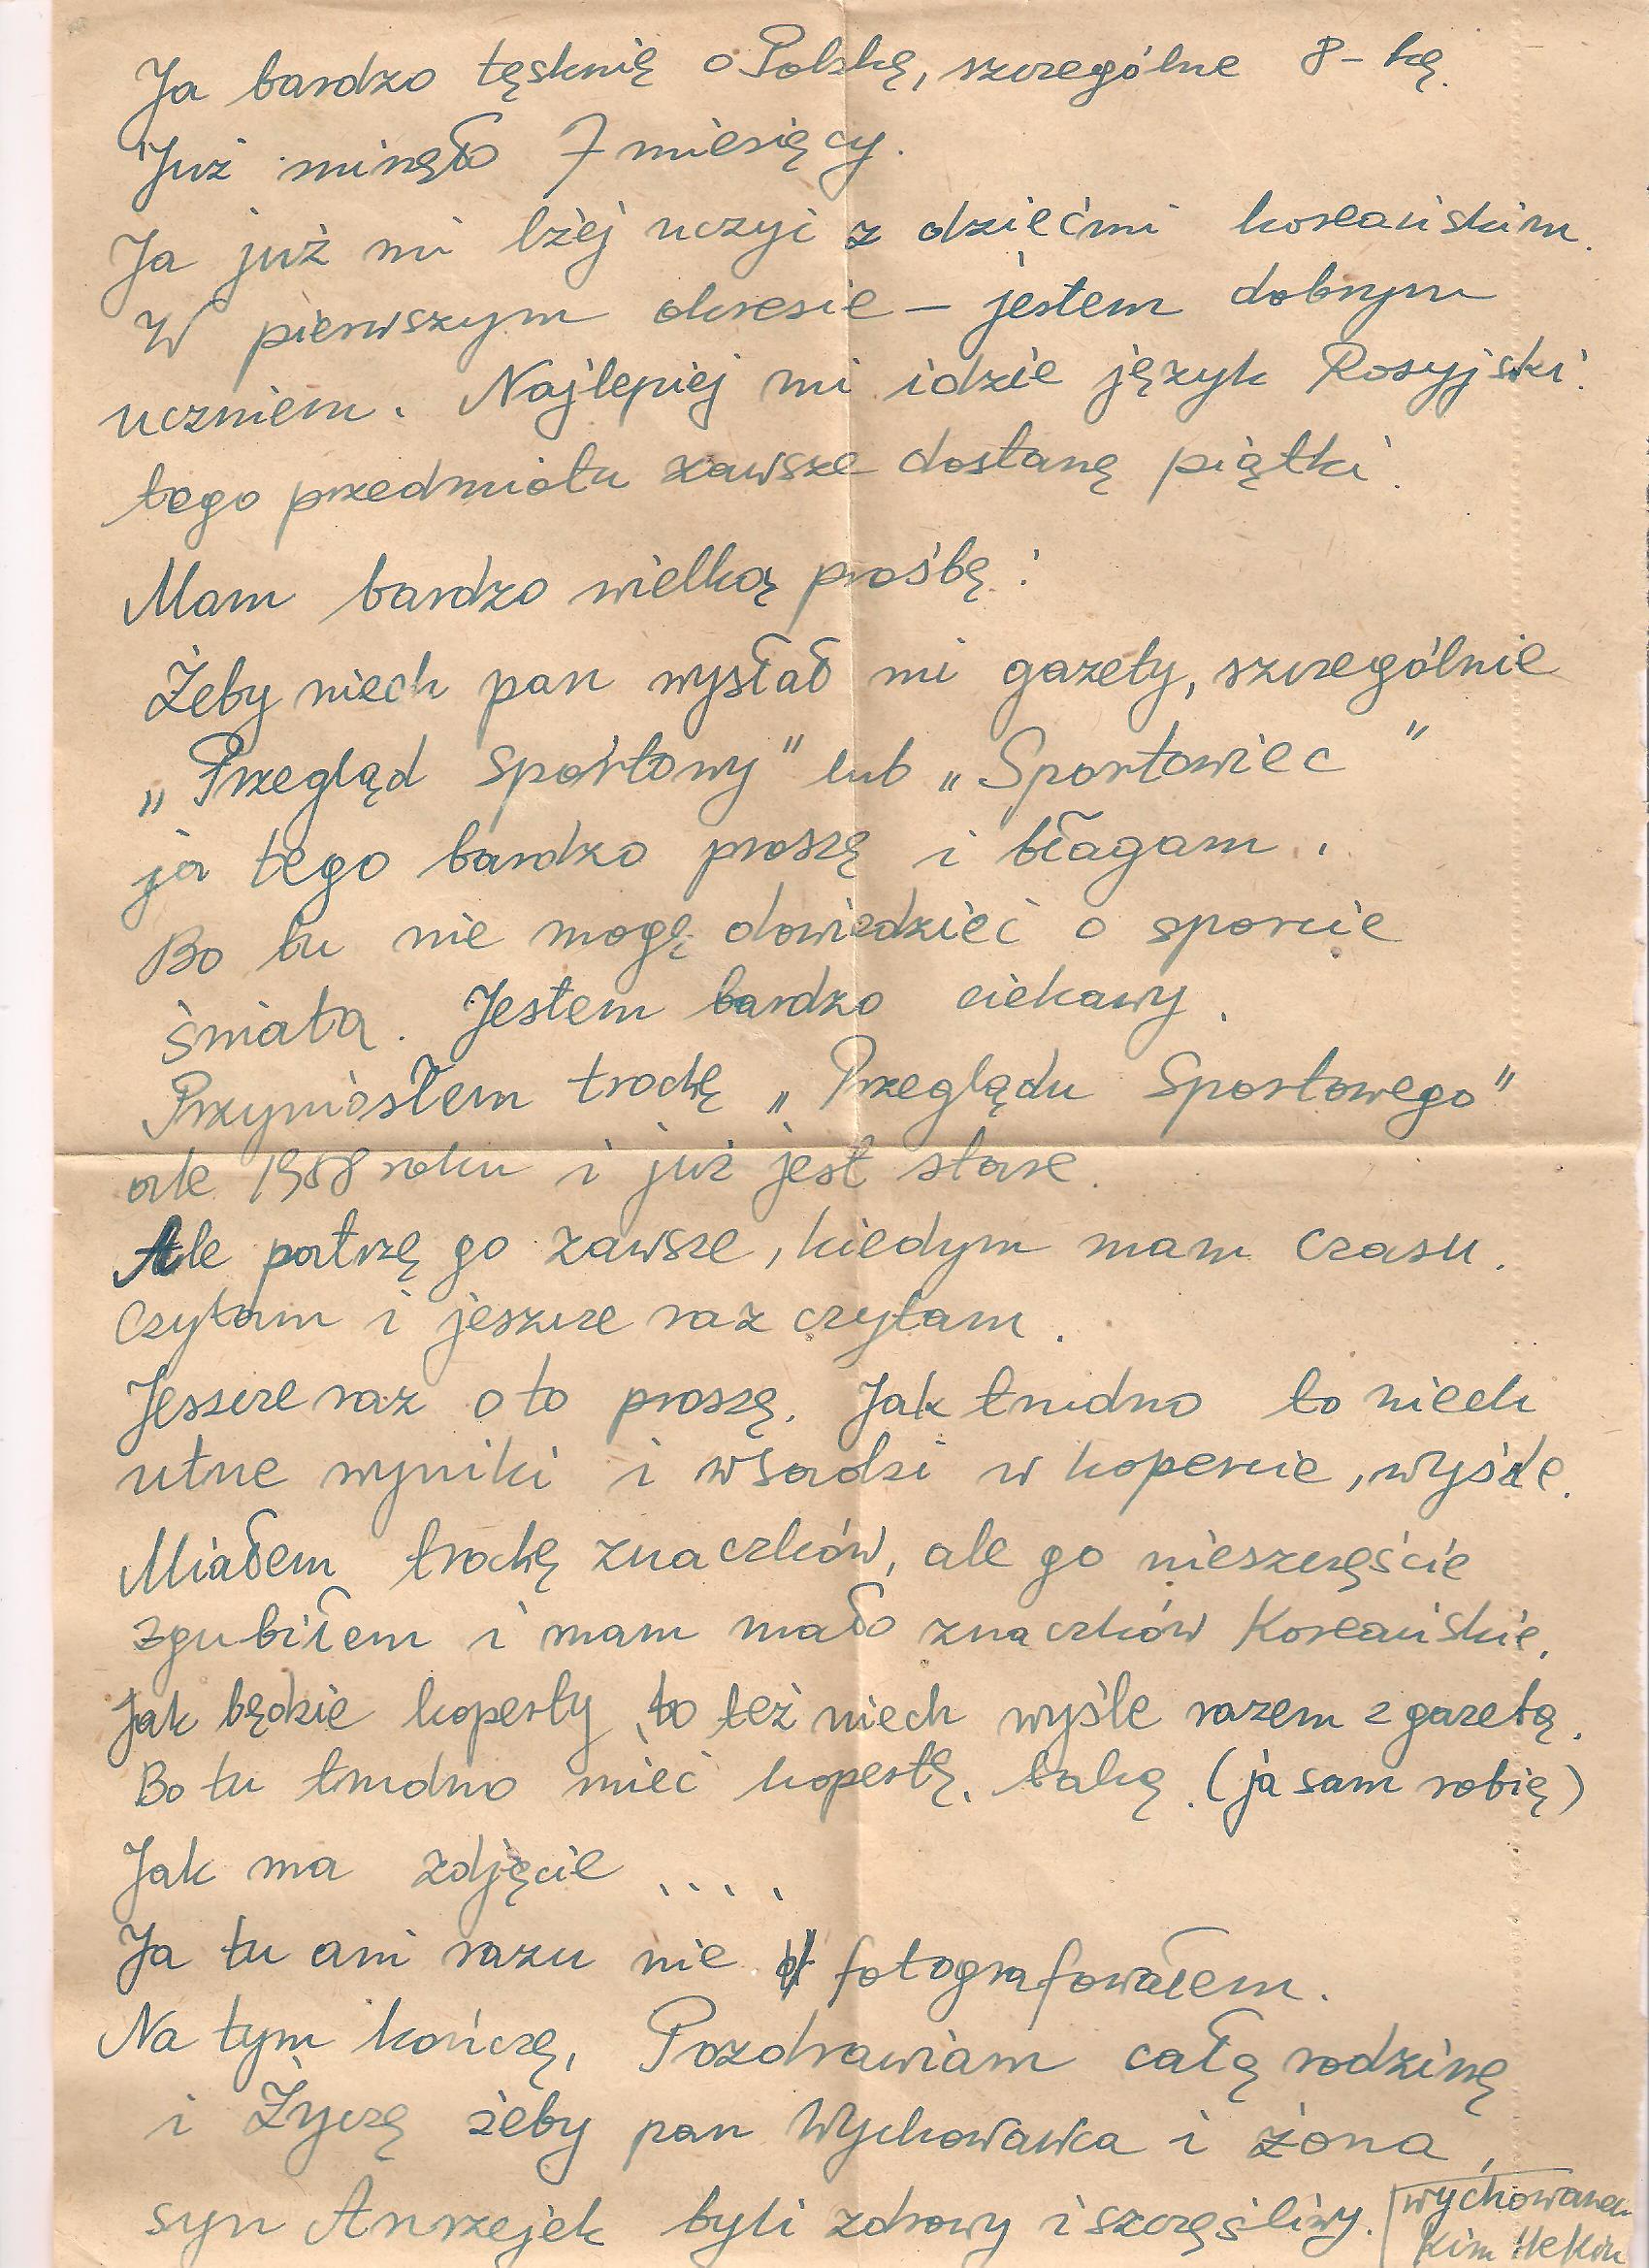 Ja bardzo tęsknię o Polskę, szczególne 8-kę.
Już minęło 7 miesięcy.
Ja już mi lżej uczyć z dziećmi koreańskim.
W pierwszym okresie – jestem dobrym
uczniem. Najlepiej mi idzie język Rosyjski.
tego przedmiotu zawsze dostanę piątki.
Mam bardzo wielką prośbę:
Żeby niech pan wysłał mi gazety, szczególnie
„Przegląd Sportowy" lub „Sportowiec"
ja tego bardzo proszę i błagam.
Bo tu nie mogę dowiedzieć o sporcie
świata. Jestem bardzo ciekawy.
Przyniosłem trochę „Przeglądu Sportowego"
ale 1958 roku i już jest stare.
Ale patrzę go zawsze, kiedym mam czasu.
Czytam i jeszcze raz czytam.
Jeszcze raz o to proszę. Jak trudno to niech
utne wyniki i wsadzi w kopercie, wyśle.
Miałem trochę znaczków, ale go nieszczęście
zgubiłem i mam mało znaczków Koreańskie.
Jak będzie koperty to też niech wyśle razem z gazetą.
Bo tu trudno mieć kopertę. taką. (ja sam robię)
Jak ma zdjęcie ....
Ja tu ani razu nie fotografowałem.
Na tym kończę. Pozdrawiam całą rodzinę
i Życzę żeby pan Wychowawca i żona,
syn Anrzejek byli zdrowy i szczęśliwy.
wychowanek
Kim